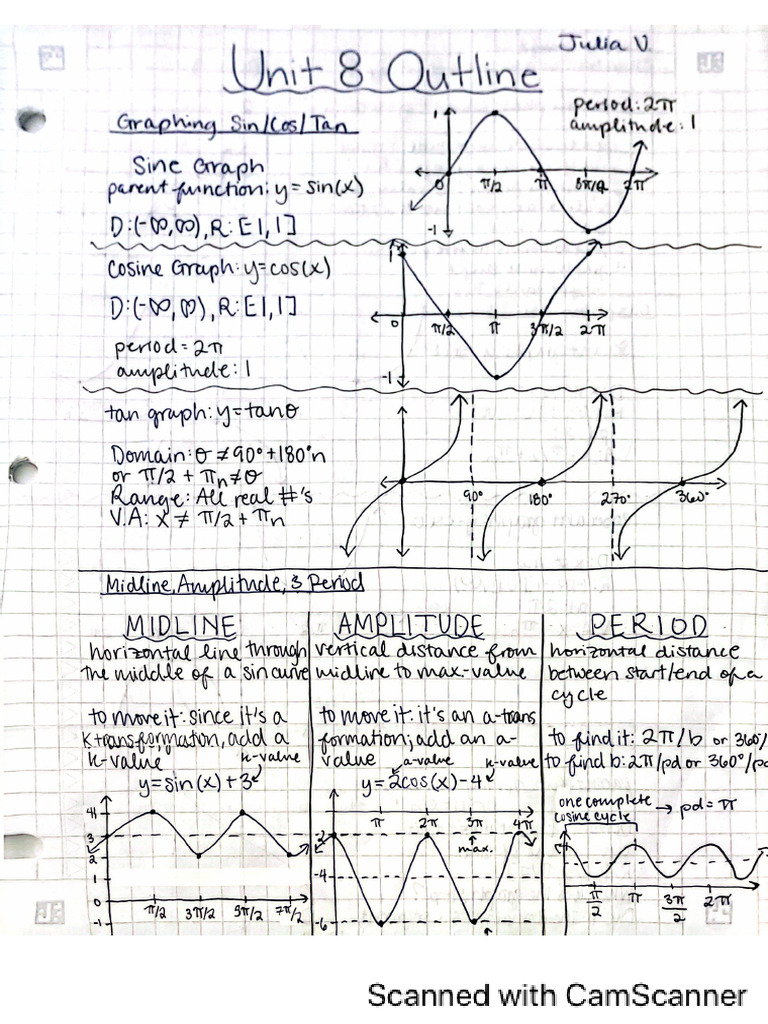 Julia V.
Unit 8 Outline
Graphing Sin/Cos/Tan
period: 2π
amplitude: 1
Sine Graph
parent function: y = sin(x)
D: (-∞,∞), R: [-1, 1]
1
0
π/2
π
3π/2
2π
-1
Cosine Graph: y=cos(x)
D: (-∞, ∞), R: [-1, 1]
period = 2π
amplitude: 1
1
0
π/2
π
3π/2
2π
-1
tan graph: y=tanθ
Domain: θ ≠ 90° + 180°n
or π/2 + πn ≠ θ
Range: All real #'s
V.A: x ≠ π/2 + πn
90°
180°
270°
360°
Midline, Amplitude, & Period
MIDLINE
horizontal line through
the middle of a sin curve
to move it: since it's a
K transformation, add a
k-value
k-value
y=sin(x)+3
4
3
2
1
0
-1
π/2
3π/2
5π/2
7π/2
AMPLITUDE
vertical distance from
midline to max-value
to move it: it's an a-trans
formation; add an a-
value
a-value
k-value
y = 2cos(x)-4
π
2π
3π
4π
-2
max.
-4
-6
PERIOD
horizontal distance
between start/end of a
cycle
to find it: 2π/b or 360°/
to find b: 2π/pd or 360°/pd
one complete
cosine cycle
→ pd = π
π/2
π
3π/2
2π
Scanned with CamScanner